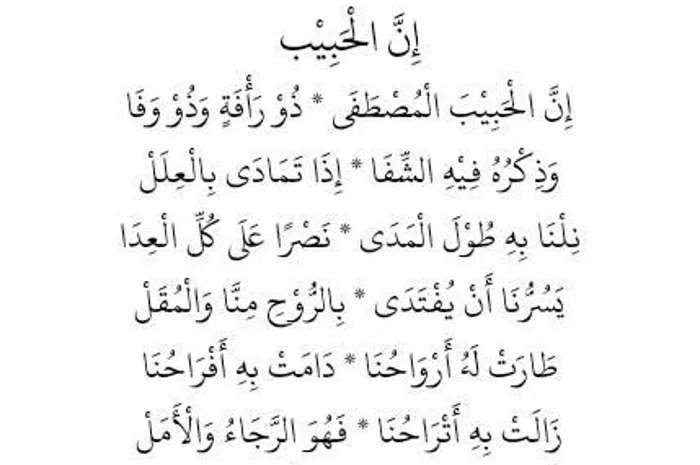 إِنَّ الْحَبِيْب
إِنَّ الْحَبِيْبَ الْمُصْطَفَى * ذُوْ رَأْفَةٍ وَذُوْ وَفَا
وَذِكْرُهُ فِيْهِ الشِّفَا * إِذَا تَمَادَى بِالْعِلَلْ
نِلْنَا بِهِ طُوْلَ الْمَدَى * نَصْرًا عَلَى كُلِّ الْعِدَا
يَسُرُّنَا أَنْ يُفْتَدَى * بِالرُّوْحِ مِنَّا وَالْمُقَلْ
طَارَتْ لَهُ أَرْوَاحُنَا * دَامَتْ بِهِ أَفْرَاحُنَا
زَالَتْ بِهِ أَتْرَاحُنَا * فَهُوَ الرَّجَاءُ وَالْأَمَلْ